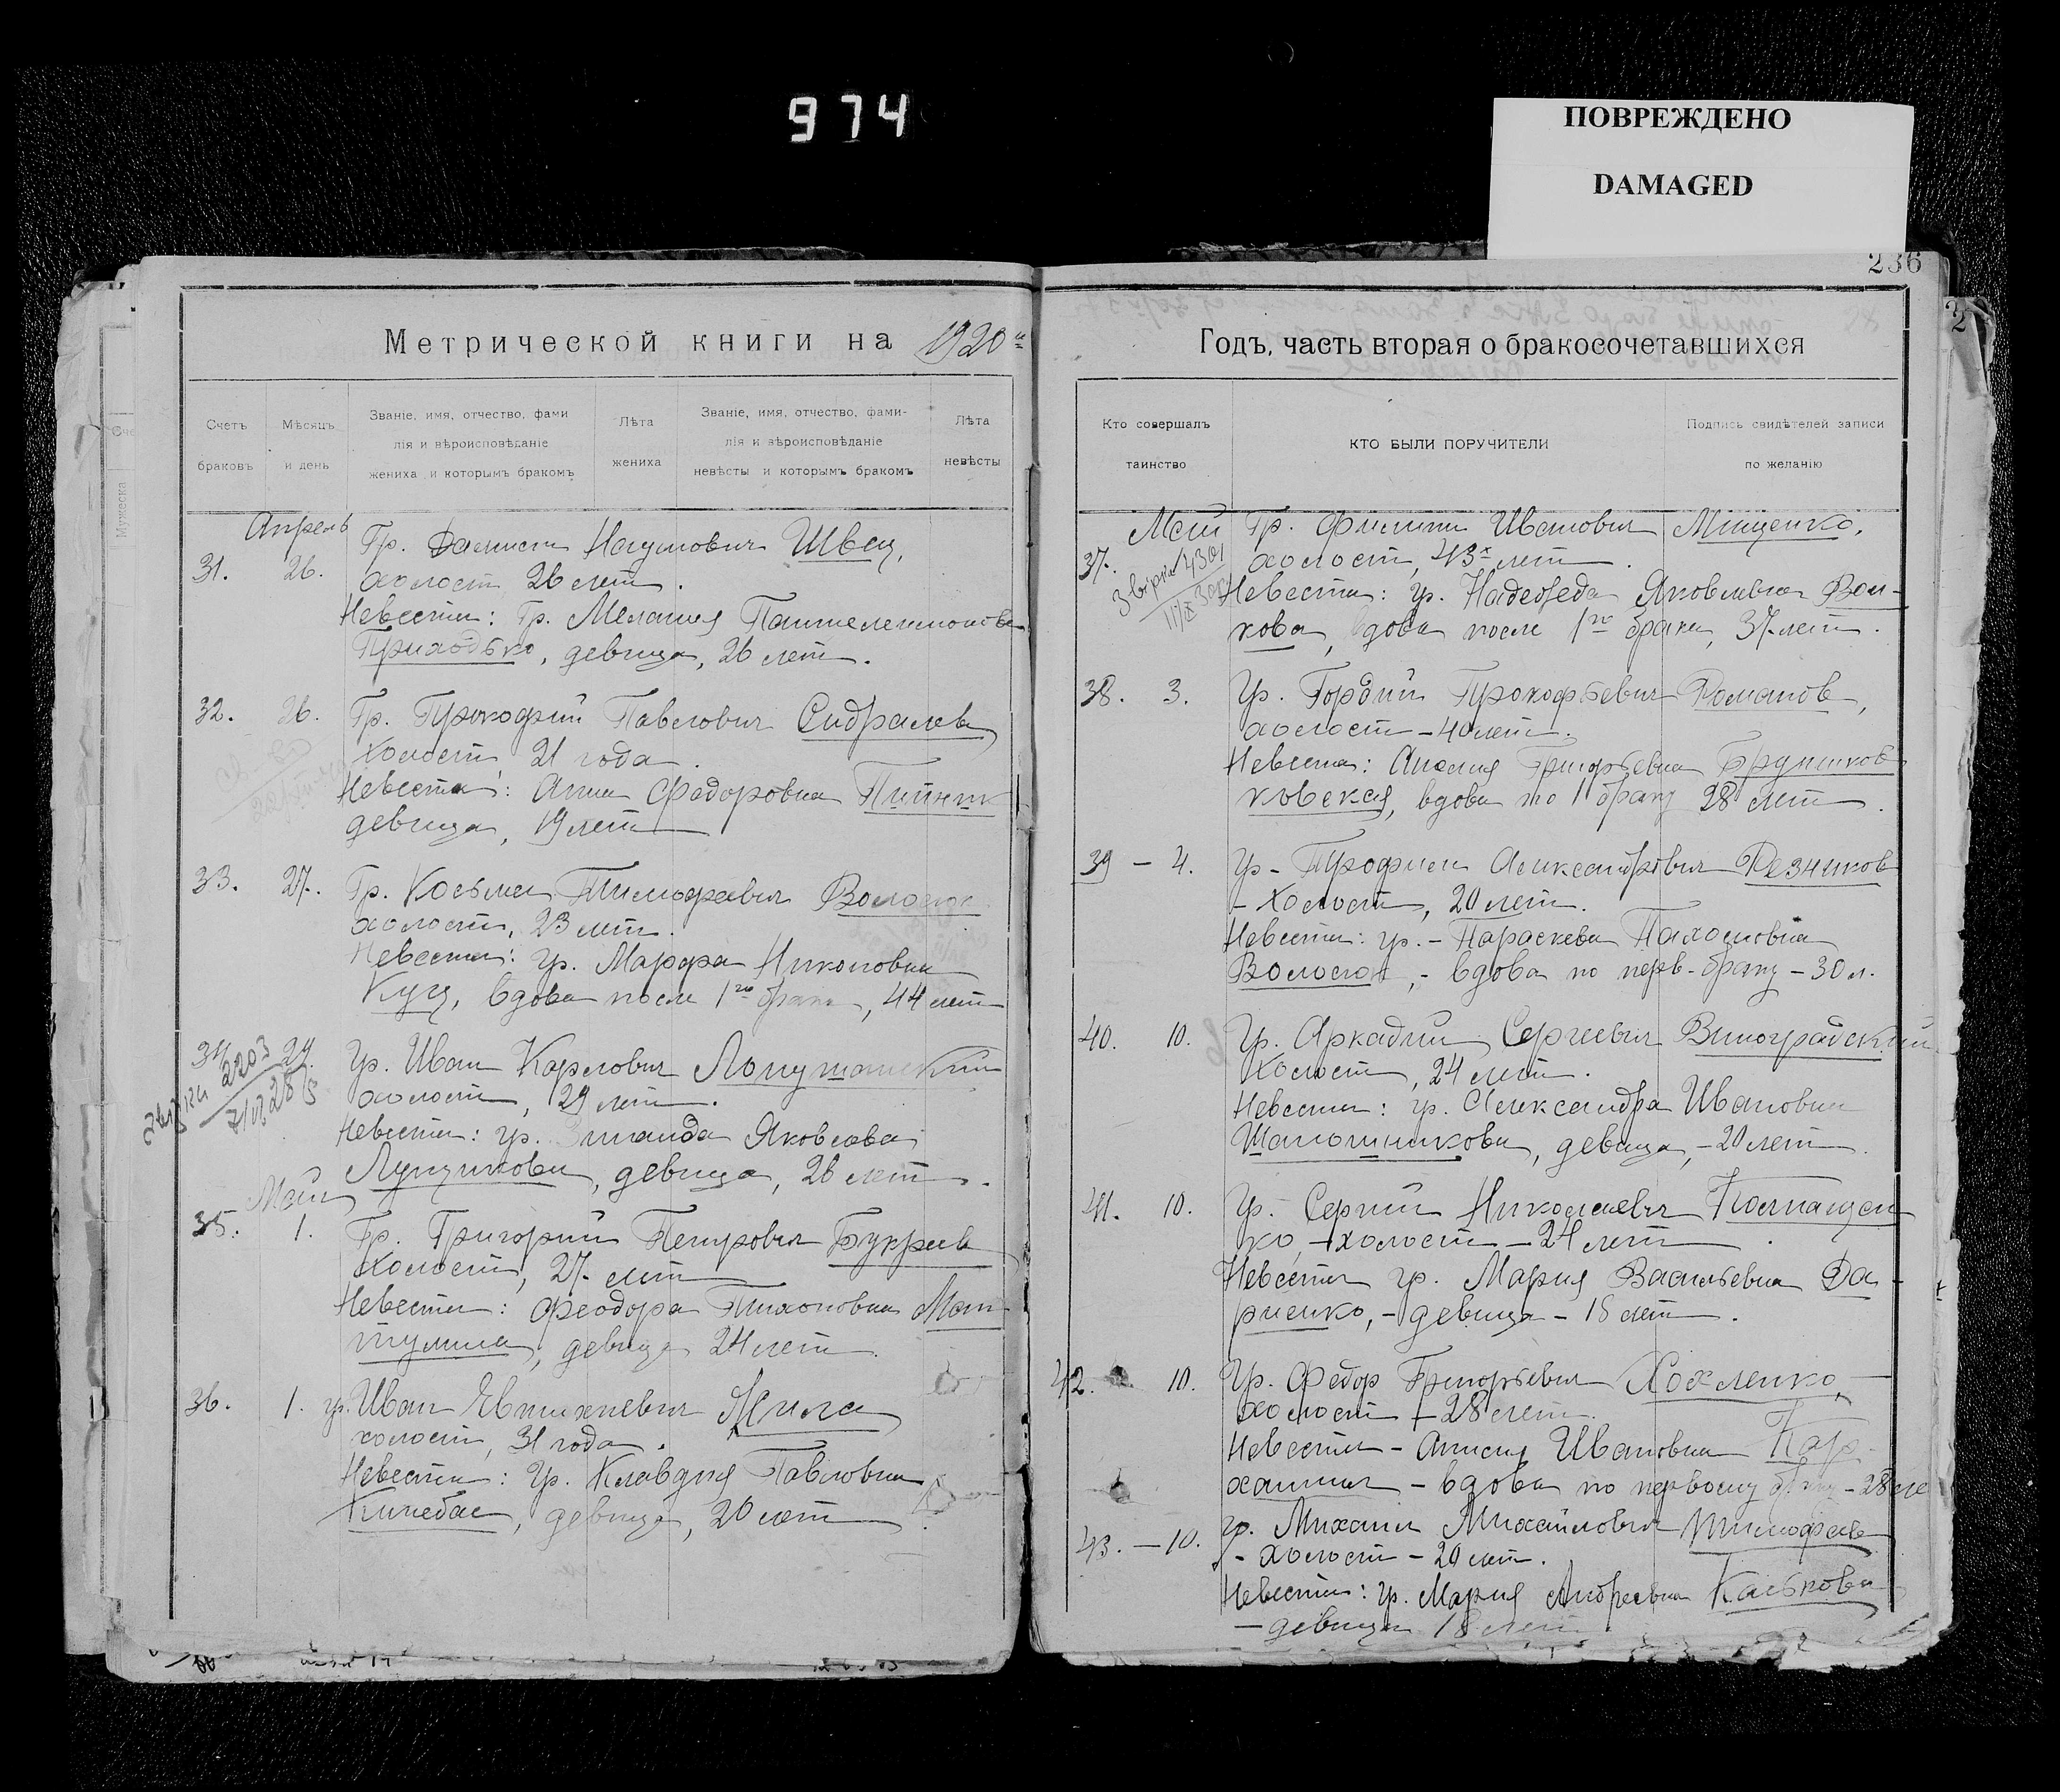 974
ПОВРЕЖДЕНО
DAMAGED
236
Метрической книги на 1920й
Счетъ браковъ
Мѣсяцъ и день
Званіе, имя, отчество, фамилія и вѣроисповѣданіе жениха и которымъ бракомъ
Лѣта жениха
Званіе, имя, отчество, фами-лія и вѣроисповѣданіе невѣсты и которымъ бракомъ
Лѣта невѣсты
Апрель
31. 26. Гр. Наумович Швец,
холост 26 лет.
Невеста: Гр. Мелания Пантелеимонова
Приходько, девица, 26 лет.
32. 26. Гр. Прокофий Павлович
холост, 21 года.
Невеста: Анна Федоровна
девица, 19 лет
33. 27. Гр. Косьма Тимофеевич
холост, 23 лет.
Невеста: гр. Марфа Никоновна
Куц, вдова после 1го брака, 44 лет
34. 29. Гр. Иван Карлович Лопушанский
холост, 29 лет.
Невеста: гр. Зинаида Яковлева
девица, 26 лет.
Май
35. 1. Гр. Григорий Петрович Букреев
холост, 27 лет
Невеста: Феодора Тихоновна
девица 24 лет.
36. 1. гр. Иван Евтихиевич Жила
холост, 31 года.
Невеста: Гр. Клавдия Павловна
Кинебас, девица, 20 лет
Годъ, часть вторая о бракосочетавшихся
Кто совершалъ таинство
КТО БЫЛИ ПОРУЧИТЕЛИ
Подпись свидѣтелей записи по желанію
Май
37. Гр. Филипп Иванович Мищенко,
холост, 43х лет.
Невеста: гр. Надежда Яковлевна Вол-
кова, вдова после 1го брака, 37 лет.
38. 3. Гр. Гордий Прокофьевич Романов,
холост - 40 лет.
Невеста: Григорьевна
вдова по 1 браку 28 лет.
39 - 4. Гр - Трофим Александрович Резников
- Холост, 20 лет.
Невеста: гр. - Параскева Пахомовна
- вдова по перв. браку - 30 л.
40. 10. Гр. Аркадий Сергеевич Виноградский
Холост, 24 лет.
Невеста: гр. Александра Ивановна
Шапошникова, девица, - 20 лет.
41. 10. Гр. Сергий Николаевич
ко, - холост - 24 лет.
Невеста гр. Мария Васильевна Да-
риенко, - девица - 18 лет.
42. 10. Гр. Федор Григорьевич Хохленко,
холост - 28 лет.
Невеста - Ивановна Кар-
- вдова по первому браку - 28 ле
43. - 10. гр. Михаил Михайлович Тимофеев
- холост - 20 лет.
Невеста: гр. Мария Андреевна Каськова
- девица 18 лет.